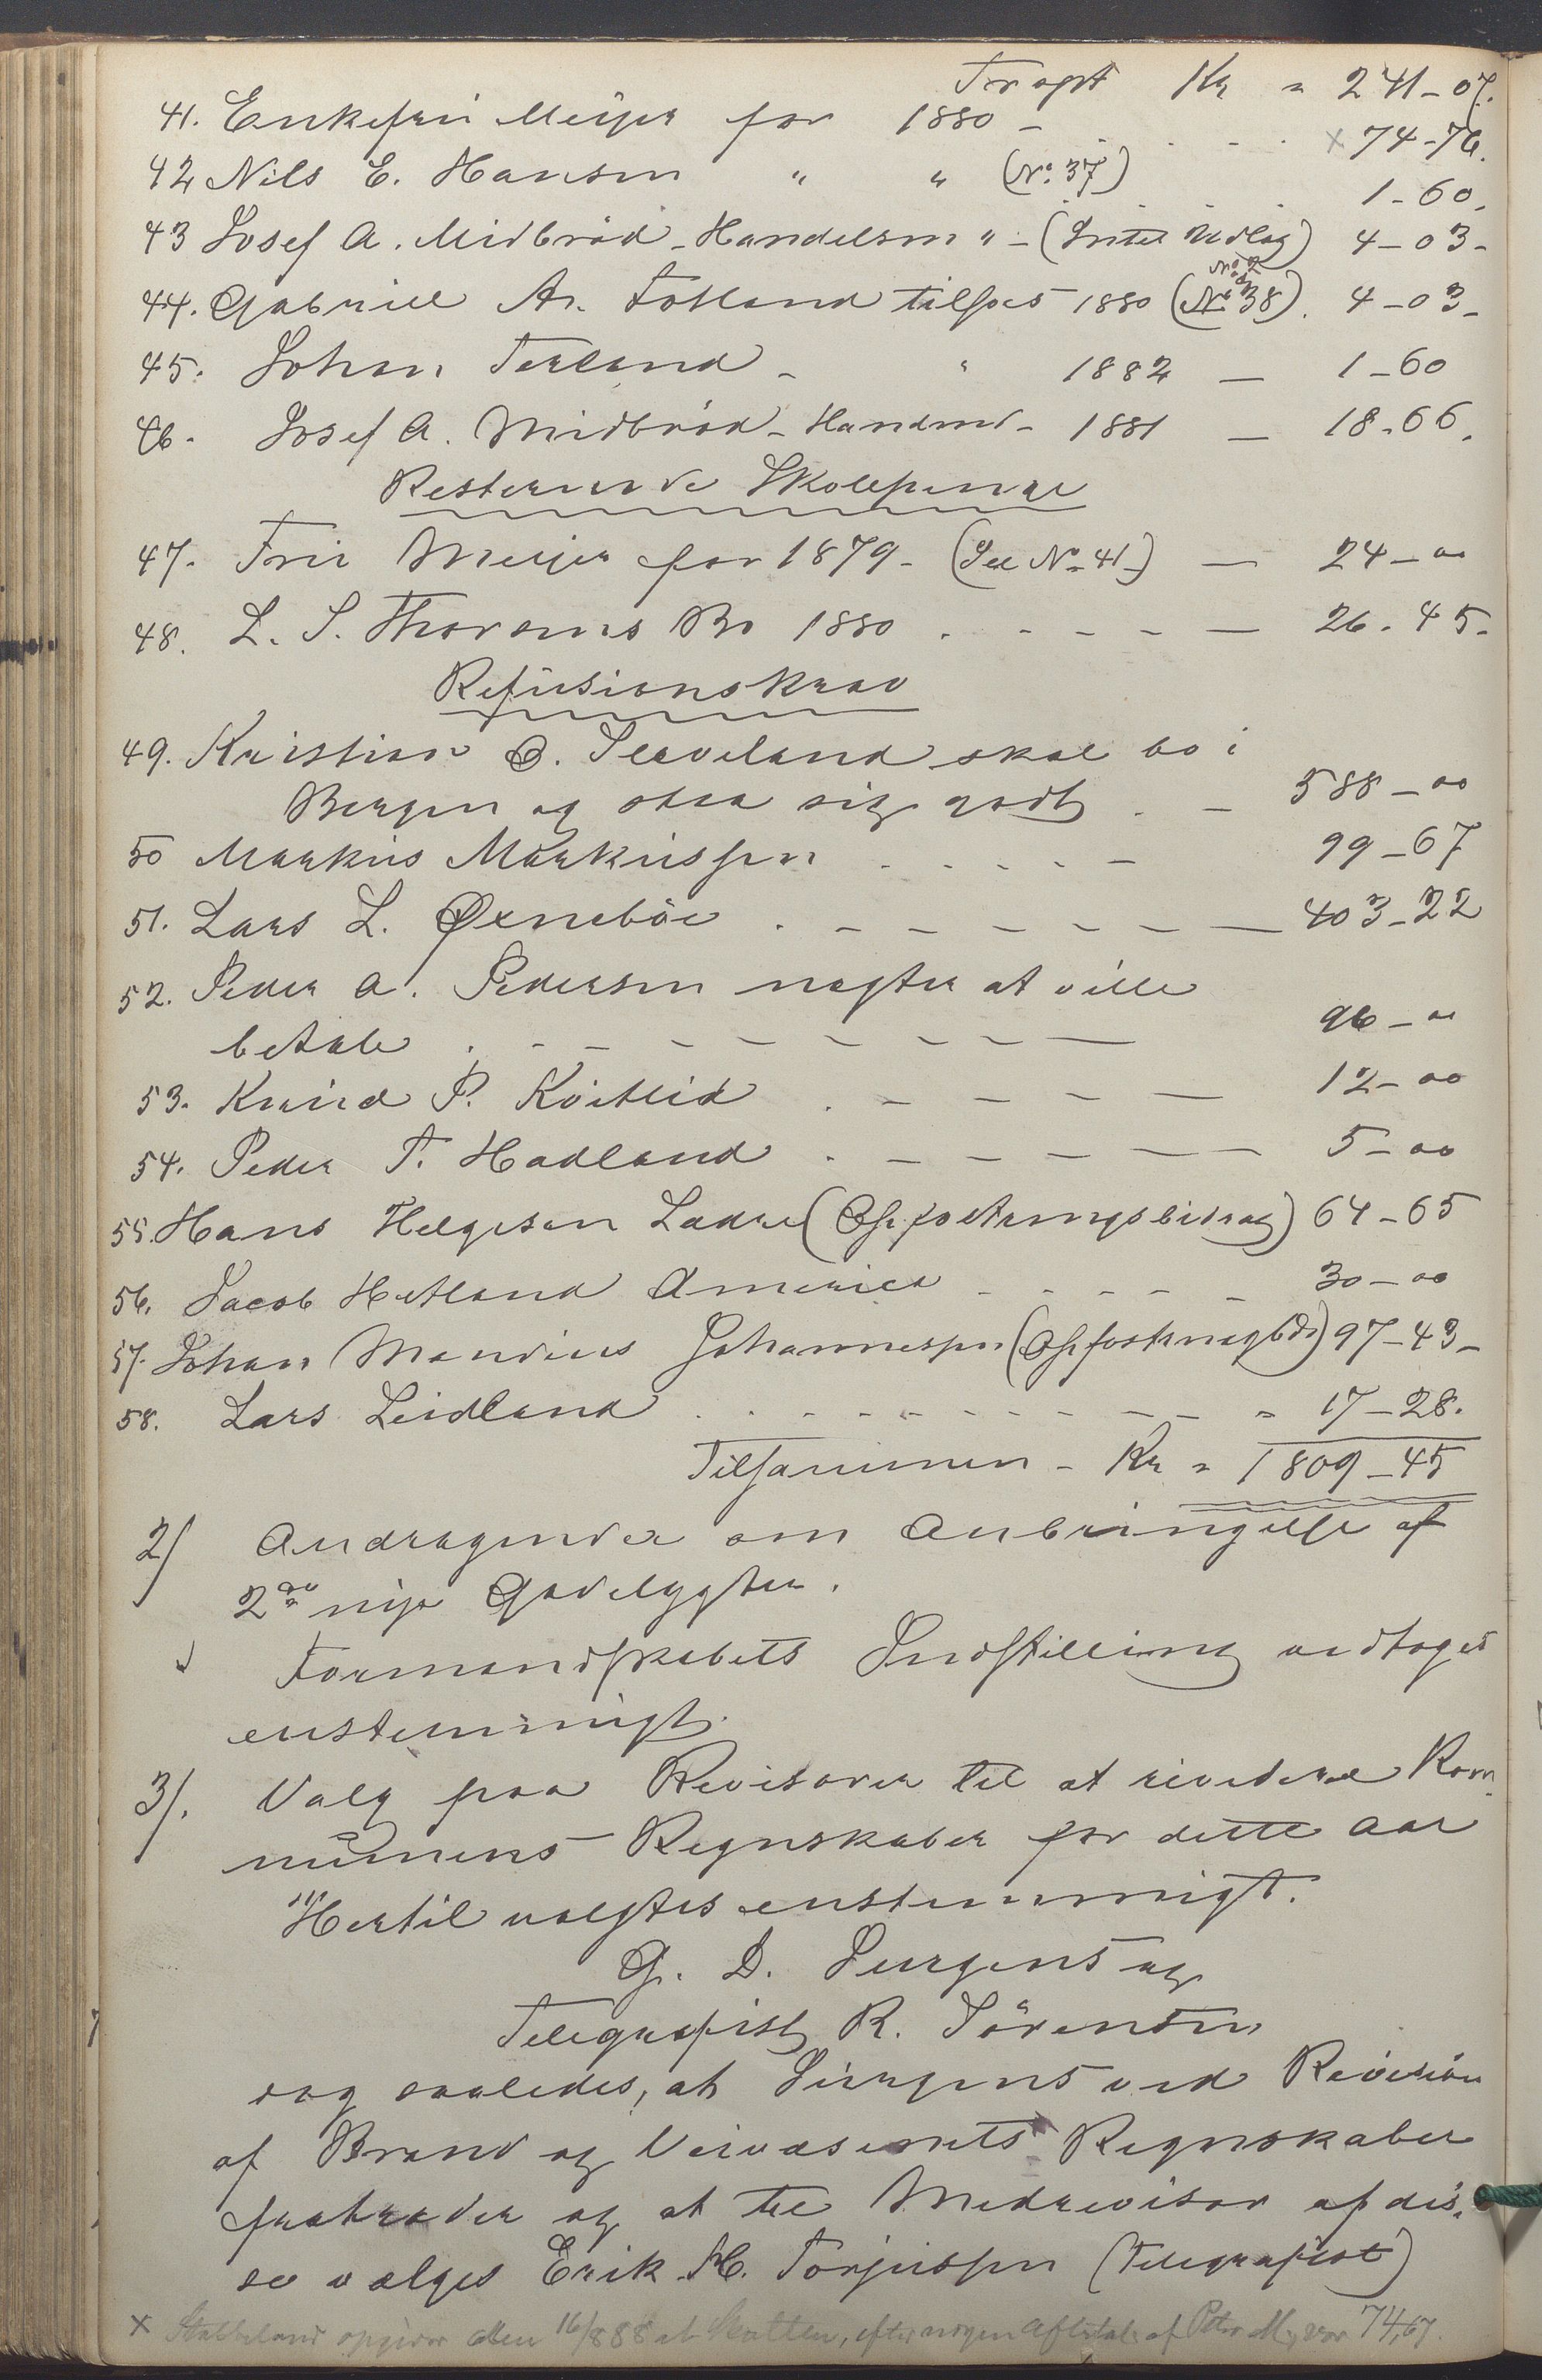 Transpt Kr " 241-07.
41. Enkefru Meijer for 1880 - x 74-76.
42 Nils E. Hansen " " (No. 37) 1-60.
43 Josef A. Midbröd - Handelsm " - (Intet Udlæg) 4-03-
44. Gabriel A. Fotland tilfors 1880 (No 38). 4-03-
45. Johan Terland - " 1882 — 1-60
46. Josef A. Midbröd - Handmd - 1881 — 18-66.
Resterende Skolepenge
47. Fru Meijer for 1879 - (See No 41) — 24-00
48. L. S. Thorsens Bo 1880 . - - - — 26.45.
Refusionskrav
49. Kristian O. Sleveland skal bo i
Bergen og staa sig godt . — 588-00
50 Markus Markussen . . - - - 99-67
51. Lars L. Øxneböe . - - - - - — 403-22
52. Peder A. Pedersen nægter at ville
betale . - - - - - - — 96-00
53. Knud P.Köitlid . - - - — 12-00
54. Peder T. Hadland . - - - - — 5-00
55. Hans Helgesen Ladre (Opfostringsbidrag) 64-65
56. Jacob Hetland America - - - - - 30-00
57. Johan Mandius Johannessen (Opfostringsbdr) 97-43-
58. Lars Leidland . - - - - - - - " 17-28.
Tilsammen - Kr " 1809-45
2/ Andragender om Anbringelse af
2de nye Gadelygter.
Formandskabets Indstilling vedtoges
enstemmigt.
3/. Valg paa Revisorer til at revidere Kom-
munens Regnskaber for dette Aar
Hertil valgtes enstemmigt.
G. D. Jurgens og
Telegrafist R. Sörensen
dog saaledes, at Jürgens ved Revision
af Brand og Veivæsenets Regnskaber
fratræder og at til Medrevisor af dis-
se vælges Erik H. Torjussen (Telegrafist)
x Stabbeland opgiver den 16/8 88 at Skatten, efter nogen Afbetal. af Peter M., var 74,67.